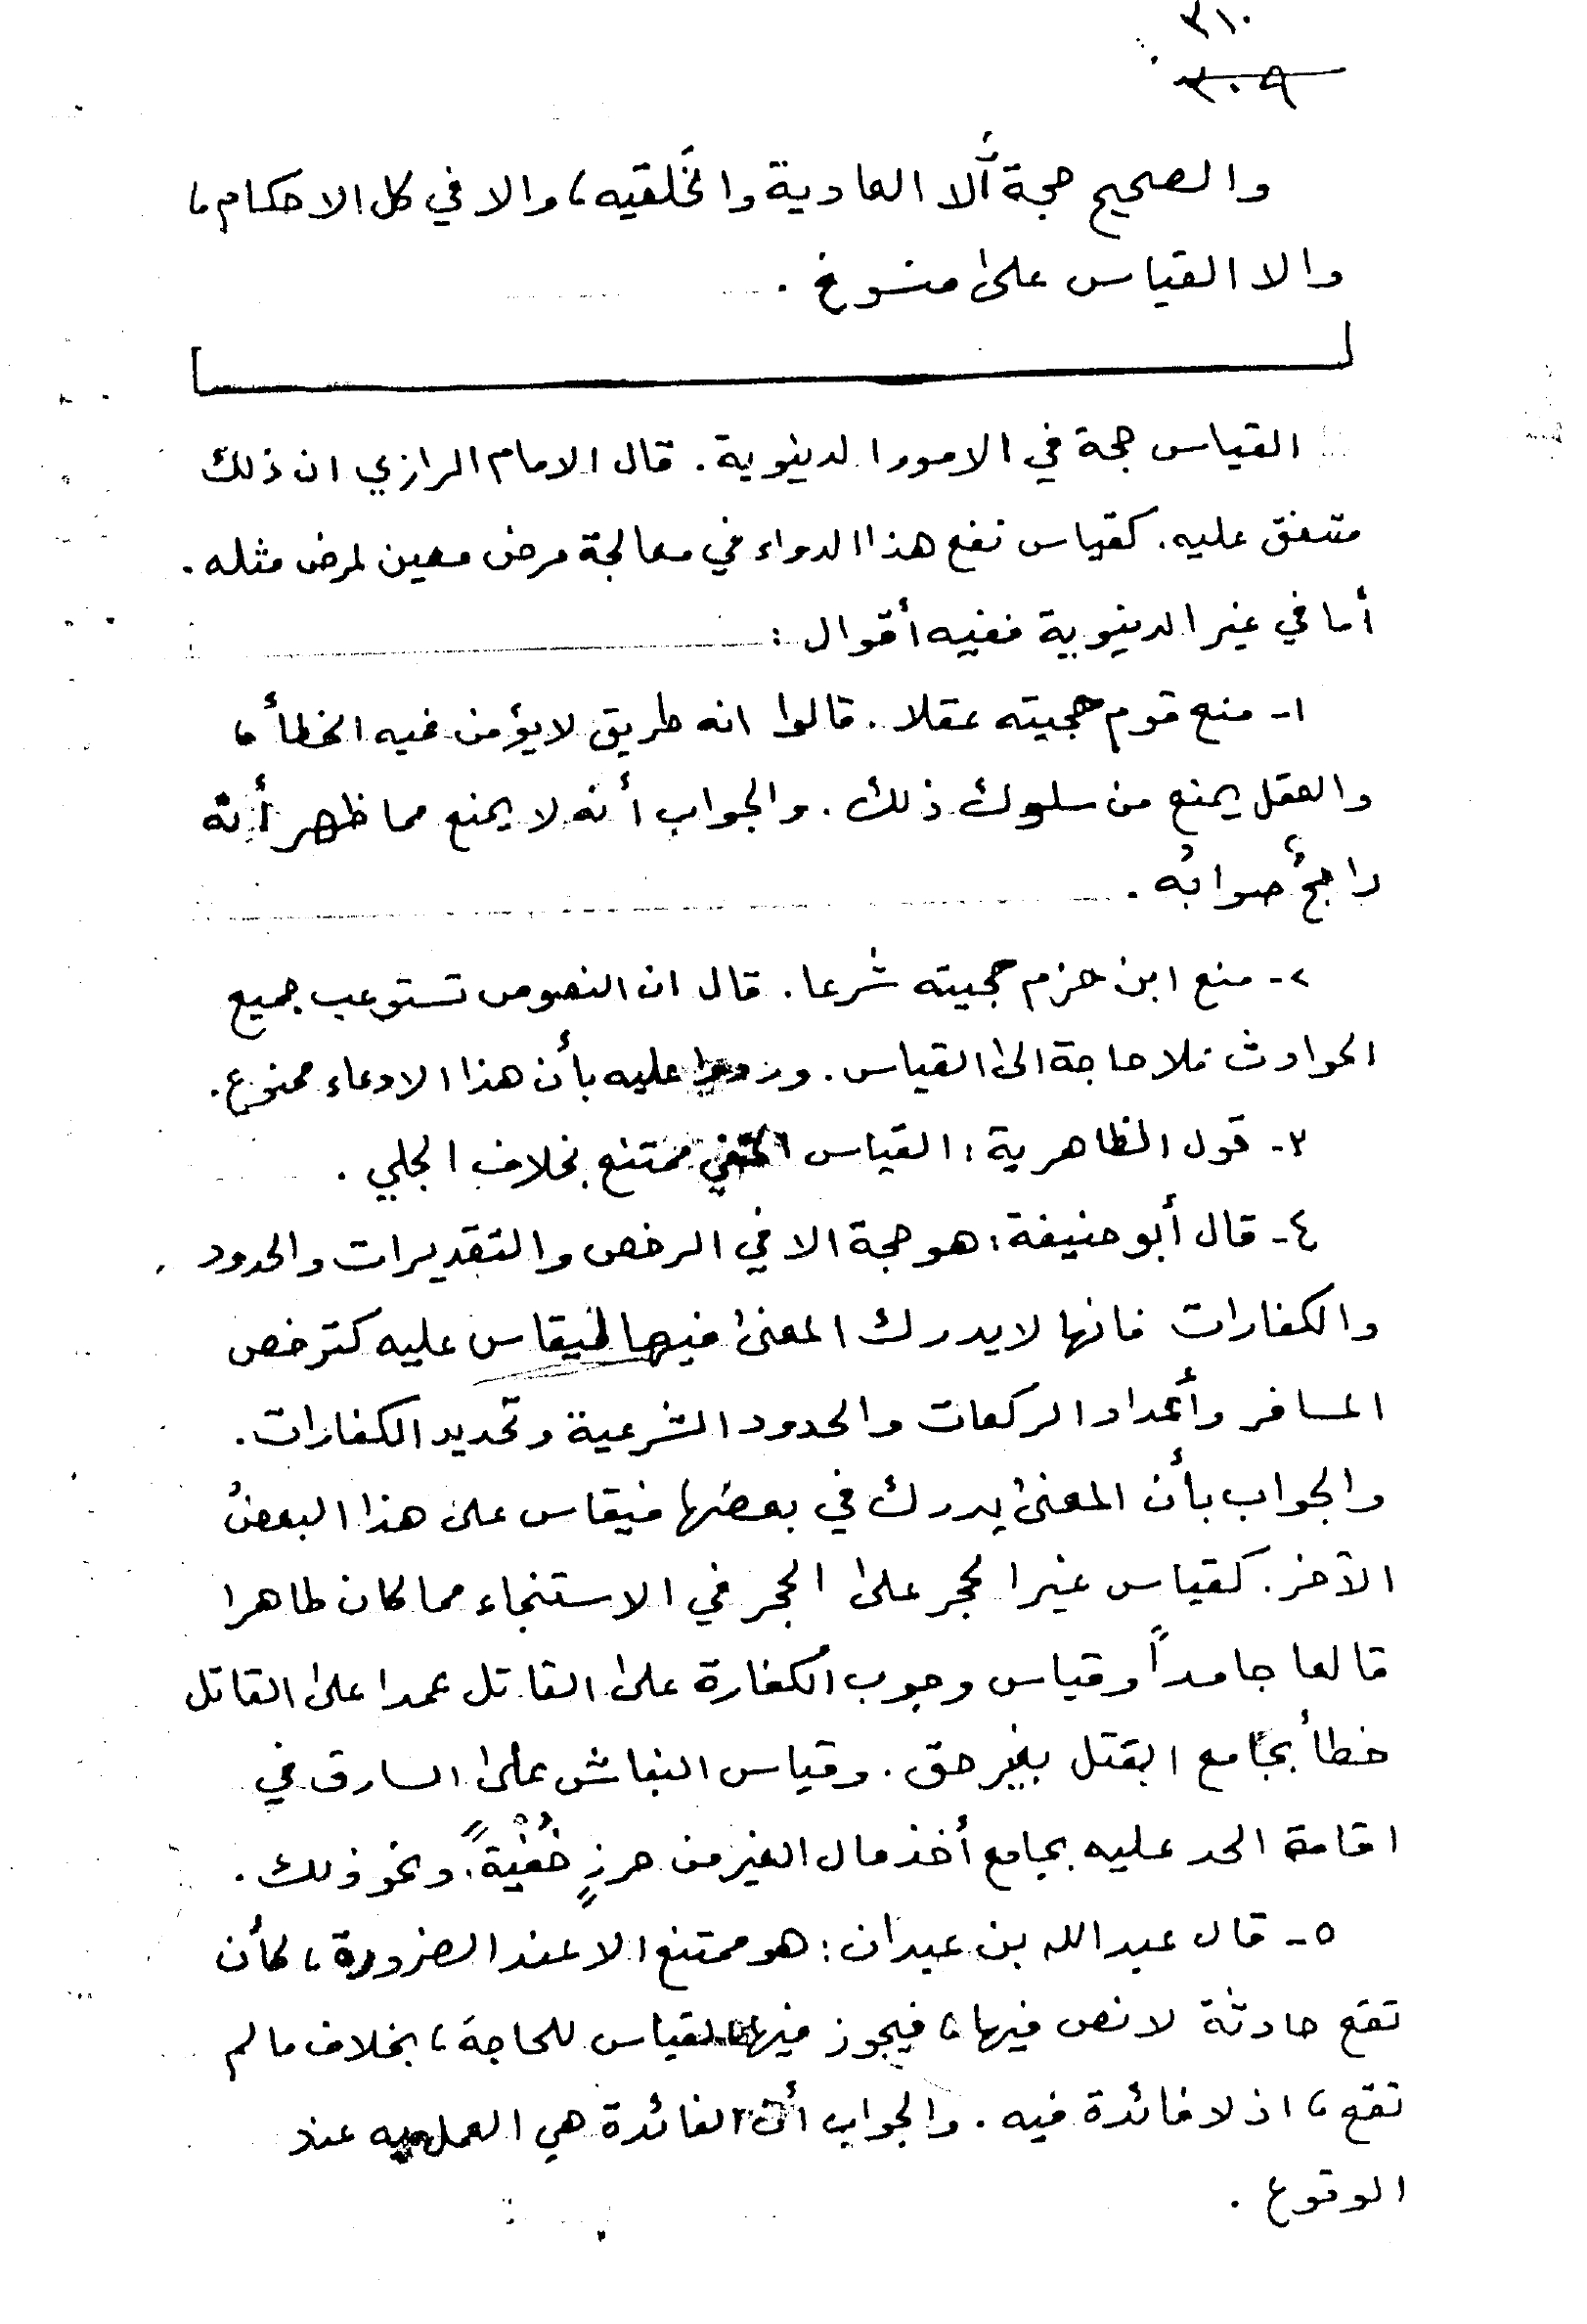 ٣١٠
٣٠٩
والصحيح حجة ألا العادية والخَلقيه، والا في كل الاحكام،
والا القياس على منسوخ .
القياس حجة في الامور الدنيوية. قال الامام الرازي ان ذلك
متفق عليه. كقياس نفع هذا الدواء في معالجة مرض معين لمرض مثله.
أما في غير الدنيوية ففيه أقوال :
١- منع قوم حجيته عقلا. قالوا انه طريق لا يؤمن فيه الخطأ،
والعقل يمنع من سلوك ذلك. والجواب أنه لا يمنع مما ظهر أنه
راجحٌ صوابُه .
٢- منع ابن حزم حجيته شرعا. قال ان النصوص تستوعب جميع
الحوادث فلا حاجة الى القياس. وردوا عليه بأن هذا الادعاء ممنوع.
٣- قول الظاهرية: القياس الخفي ممتنع بخلاف الجلي .
٤- قال أبو حنيفة: هو حجة الا في الرخص والتقديرات والحدود
والكفارات فانها لا يدرك المعنى فيها ليقاس عليه كترخص
المسافر وأعداد الركعات والحدود الشرعية وتحديد الكفارات.
والجواب بأن المعنى يدرك في بعضها فيقاس على هذا البعضُ
الآخر. كقياس غير الحجر على الحجر في الاستنجاء مما كان طاهرا
قالعا جامداً وقياس وجوب الكفارة على القاتل عمدا على القاتل
خطأ بجامع القتل بغير حق. وقياس النباش على السارق في
اقامة الحد عليه بجامع أخذ مال الغير من حرزٍ خُفْيةً، ونحو ذلك.
٥- قال عبدالله بن عبدان: هو ممتنع الا عند الضرورة، كأن
تقع حادثة لا نص فيها، فيجوز فيها القياس للحاجة، بخلاف ما لم
تقع، اذ لا فائدة فيه. والجواب أن الفائدة هي العمل به عند
الوقوع .